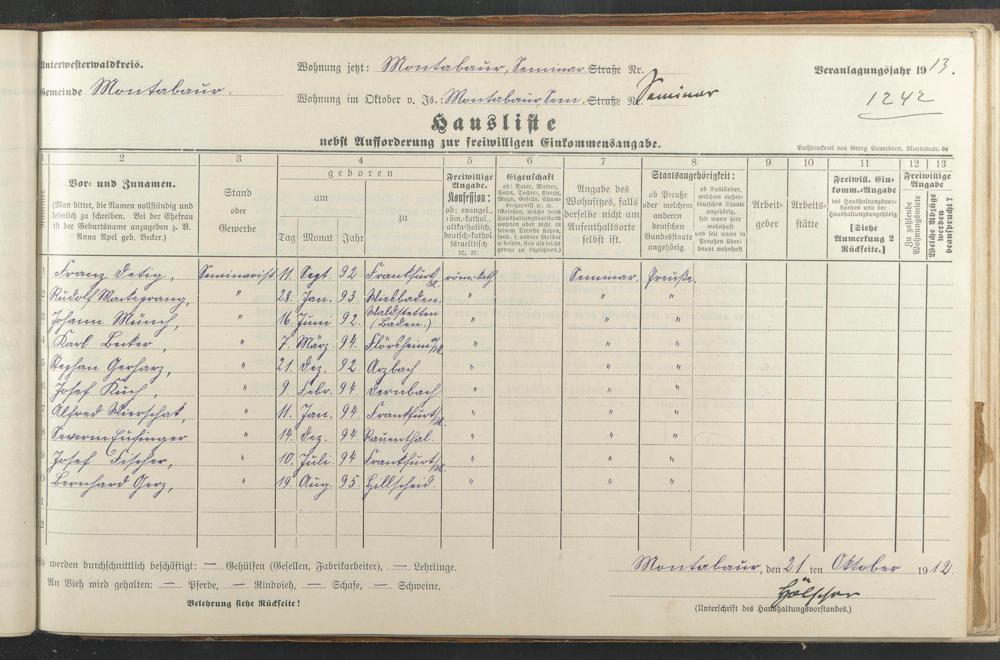 Unterwesterwaldkreis.
Gemeinde Montabaur.
Wohnung jetzt: Montabaur, Seminar Straße Nr.
Wohnung im Oktober v. Js.: Montabaur, Sem. Straße Nr. Seminar
Veranlagungsjahr 1913.
1242
Hausliste
nebst Aufforderung zur freiwilligen Einkommensangabe.
Buchdruckerei von Georg Sauerborn, Montabaur.
1 2 3 4 5 6 7 8 9 10 11 12 13
Vor- und Zunamen.
(Man bittet, die Namen vollständig und
leserlich zu schreiben. Bei der Ehefrau
ist der Geburtsname anzugeben z. B.
Anna Apel geb. Becker.)
Stand
oder
Gewerbe
geboren
am
Tag Monat Jahr
zu
Freiwillige
Angabe.
Konfession:
ob: evangel.,
röm.-kathol.,
altkatholisch,
deutsch-kathol.
israelitisch
etc. etc.
Eigenschaft
ob: Vater, Mutter,
Sohn, Tochter, Knecht,
Magd, Geselle, Cham-
bregarnist u. s.
Angabe des
Wohnsitzes, falls
derselbe nicht am
Aufenthaltsorte
selbst ist.
Staatsangehörigkeit:
ob Preuße
oder welchem
anderen
Bundesstaate
angehörig.
ob Ausländer,
welchem außer-
deutschen Staate
angehörig,
seit wann hier
wohnhaft
und seit wann in
Preußen über-
haupt wohnhaft
Arbeit-
geber
Arbeits-
stätte
Freiwill. Ein-
komm.-Angabe
des Haushaltungsvor-
standes und der
Haushaltungsangehörig.
[Siehe
Anmerkung 2
Rückseite.]
Freiwillige
Angabe
Zu zahlende
Wohnungsmiete
Welche Abzüge
werden
beansprucht?
1 Franz Detig, Seminarist 11. Sept. 92. Frankfurt/M. röm. kath. Seminar. Preuße.
2 Rudolf Manteprang, " 28. Jan. 93. Wiesbaden. " " "
3 Johann Münch, " 16. Juni 92. Waldstetten (Baden.) " " "
4 Karl Becker, " 7. März 94. Flörsheim a/M. " " "
5 Stephan Gerharz, " 21. Dez. 92 Arzbach " " "
6 Josef Kuch, " 9. Febr. 94 Dernbach " " "
7 Alfred Wierschat, " 11. Jan. 94. Frankfurt/M. " " "
8 Severin Eufinger " 14. Dez. 94 Rauenthal. " " "
9 Josef Fischer, " 10. Juli 94 Frankfurt/M. " " "
10 Bernhard Gerz, " 19. Aug. 95. Hillscheid. " " "
11
12
Es werden durchschnittlich beschäftigt: — Gehülfen (Gesellen, Fabrikarbeiter), — Lehrlinge.
An Vieh wird gehalten: — Pferde, — Rindvieh, — Schafe, — Schweine.
Belehrung siehe Rückseite!
Montabaur, den 21 ten Oktober 1912.
Hölscher
(Unterschrift des Haushaltungsvorstandes.)